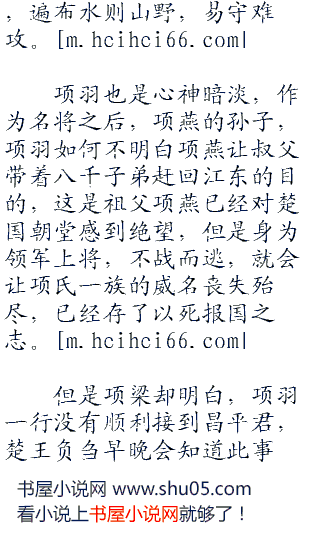 ，遍布水则山野，易守难
攻。[m.hcihci66.com|
项羽也是心神暗淡，作
为名将之后，项燕的孙子，
项羽如何不明白项燕让叔父
带着八千子弟赶回江东的目
的，这是祖父项燕已经对楚
国朝堂感到绝望，但是身为
领军上将，不战而逃，就会
让项氏一族的威名丧失殆
尽，已经存了以死报国之
志。[m.hcihci66.com|
但是项梁却明白，项羽
一行没有顺利接到昌平君，
楚王负刍早晚会知道此事
书屋小说网 www.shu05.com
看小说上书屋小说网就够了！